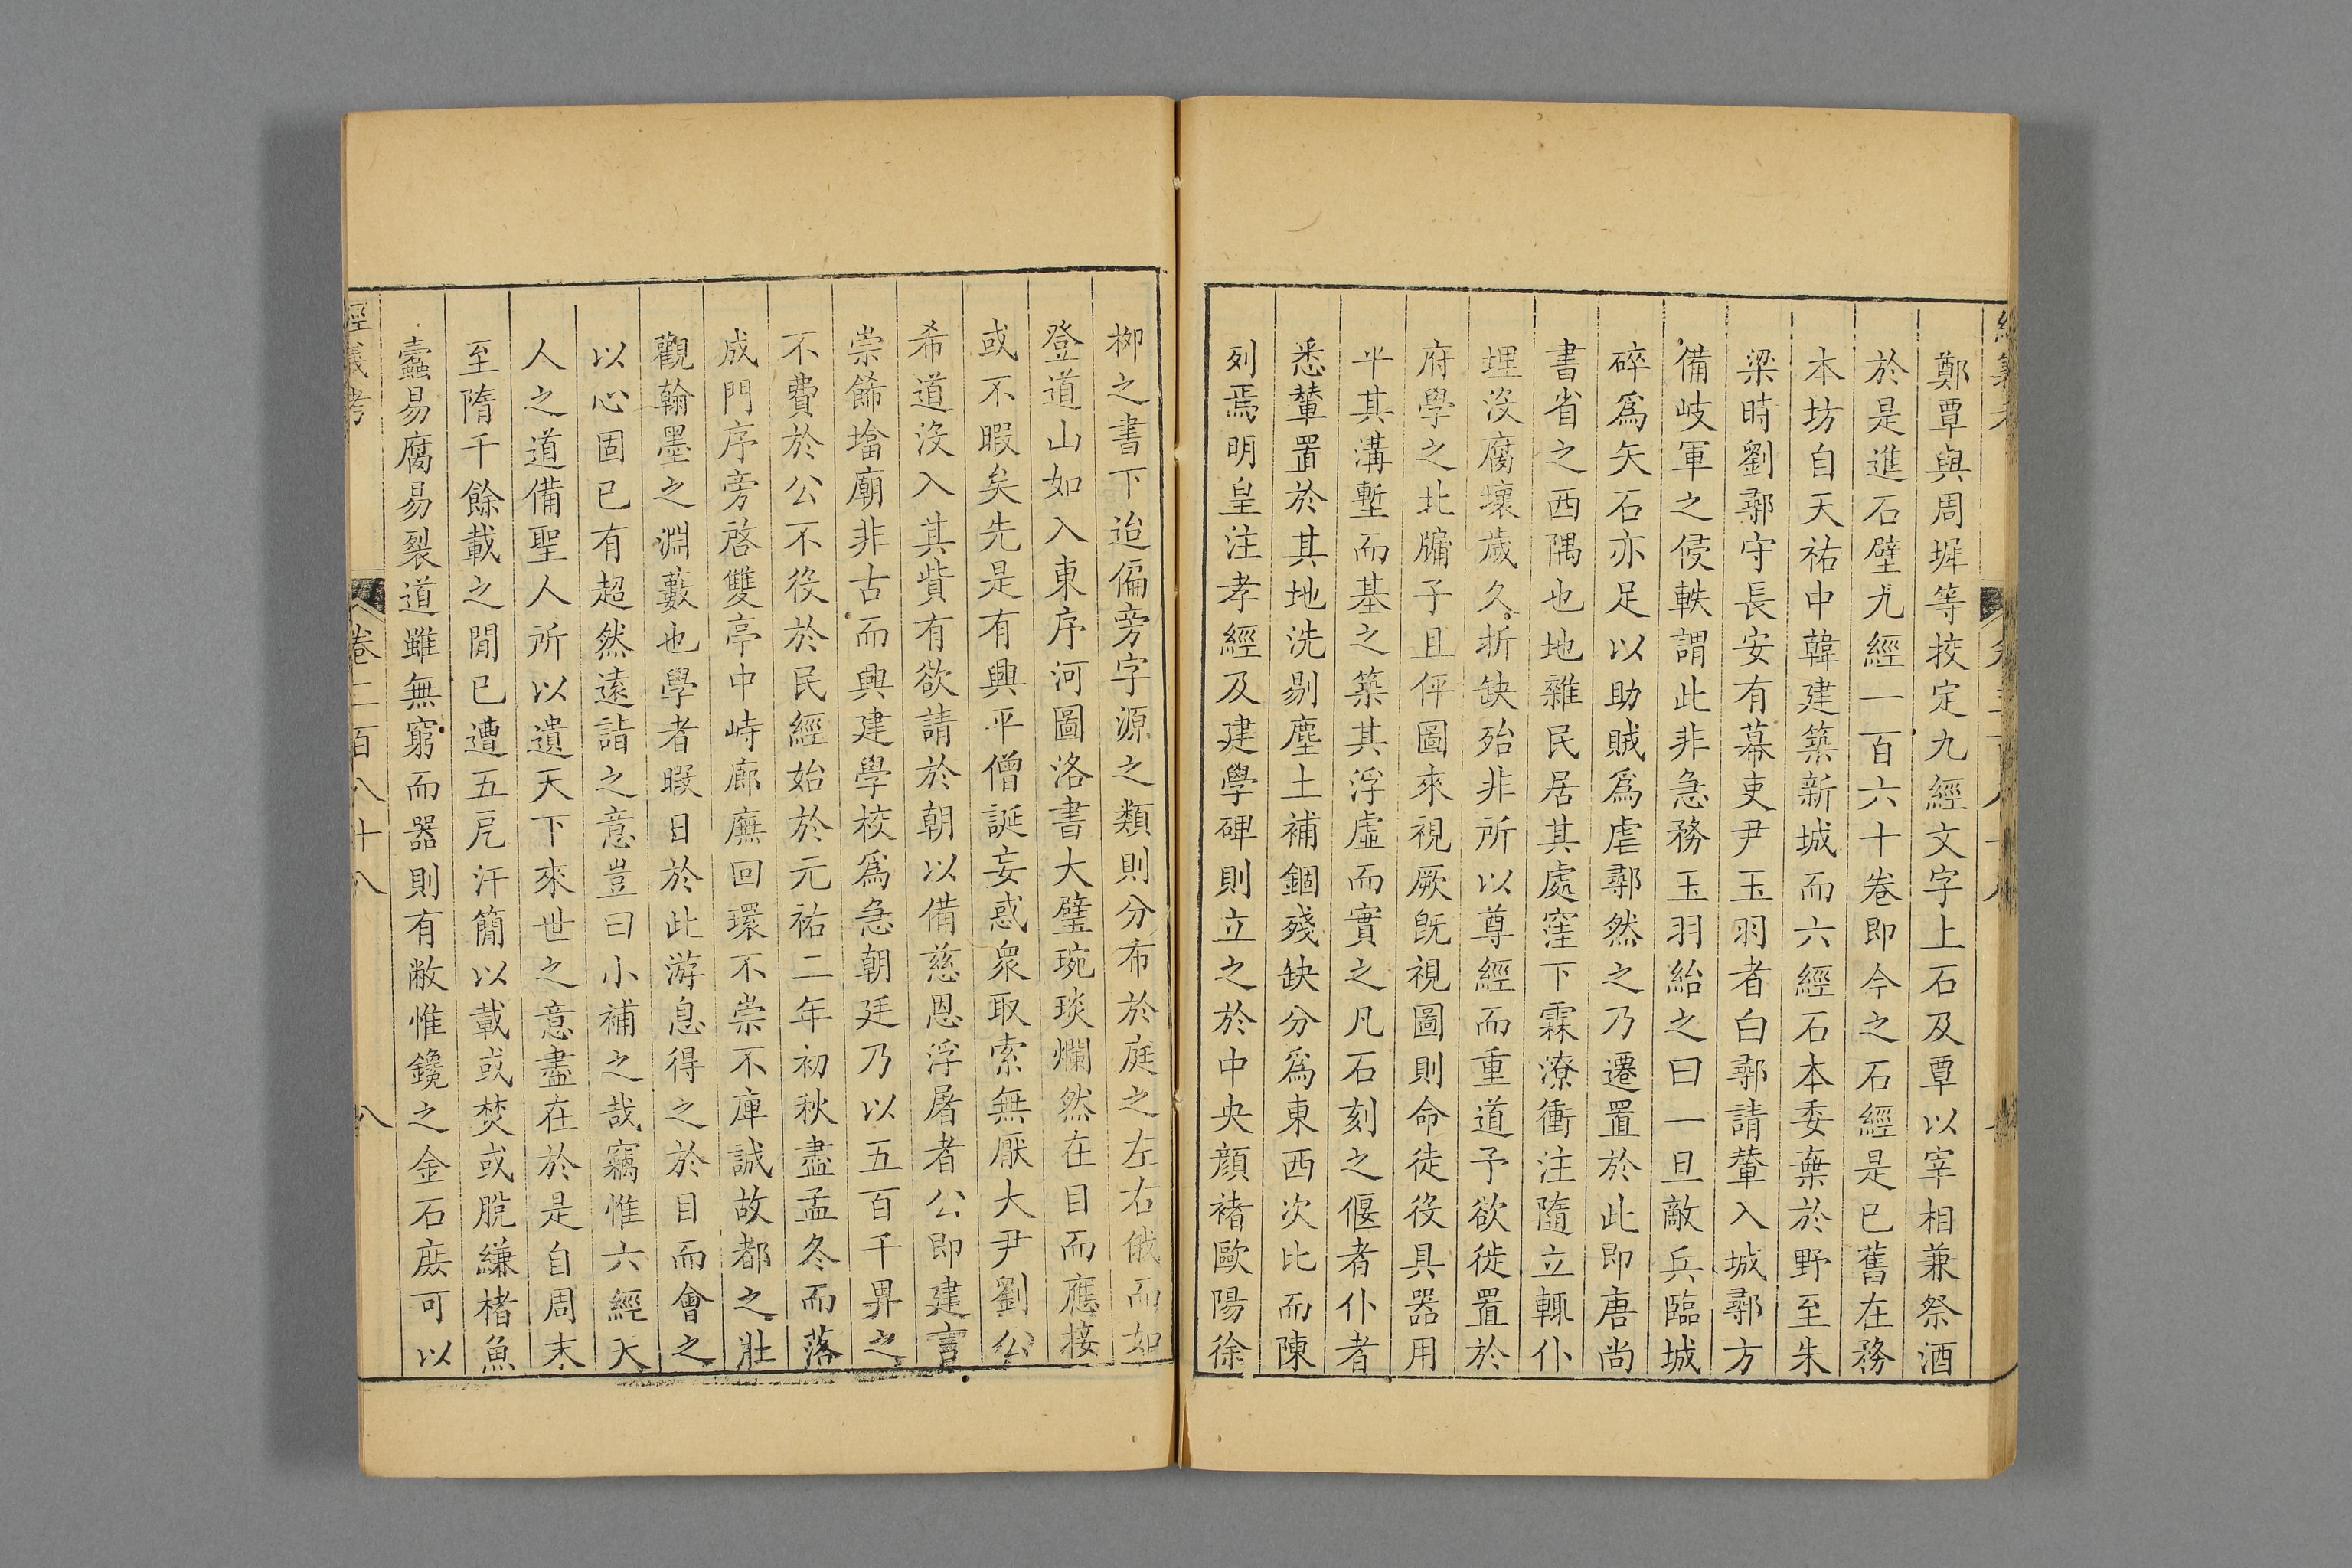 鄭覃與周墀等挍定九經文字上石及覃以宰相兼祭酒
於是進石壁九經一百六十卷即今之石經是已舊在務
本坊自天祐中韓建築新城而六經石本委棄於野至朱
梁時劉鄩守長安有幕吏尹玉羽者白鄩請輦入城鄩方
備岐軍之侵軼謂此非急務玉羽紿之曰一旦敵兵臨城
碎爲矢石亦足以助賊爲虐鄩然之乃遷置於此即唐尚
書省之西隅也地雜民居其處窪下霖潦衝注隨立輒仆
埋沒腐壞歲久折缺殆非所以尊經而重道予欲徙置於
府學之北牖子且伻圖來視厥既視圖則命徒役具器用
平其溝塹而基之築其浮虛而實之凡石刻之偃者仆者
悉輦置於其地洗剔塵土補錮殘缺分爲東西次比而陳
列焉明皇注孝經及建學碑則立之於中央顔褚歐陽徐
桞之書下迨偏旁字源之類則分布於庭之左右俄而如
登道山如入東序河圖洛書大璧琬琰爛然在目而應接
或不暇矣先是有興平僧誕妄惑衆取索無厭大尹劉公
希道沒入其貲有欲請於朝以備慈恩浮屠者公即建言
崇餙壋廟非古而興建學校爲急朝廷乃以五百千畀之
不費於公不役於民經始於元祐二年初秋盡孟冬而落
成門序旁啓雙亭中峙廊廡回環不崇不庳誠故都之壯
觀翰墨之淵藪也學者暇日於此游息得之於目而會之
以心固已有超然遠詣之意豈曰小補之哉竊惟六經天
人之道備聖人所以遺天下來世之意盡在於是自周末
至隋千餘載之閒已遭五厄汗簡以載或焚或脫縑楮魚
蠹易腐易裂道雖無窮而器則有敝惟鑱之金石庶可以
經義考 卷二百八十八 八